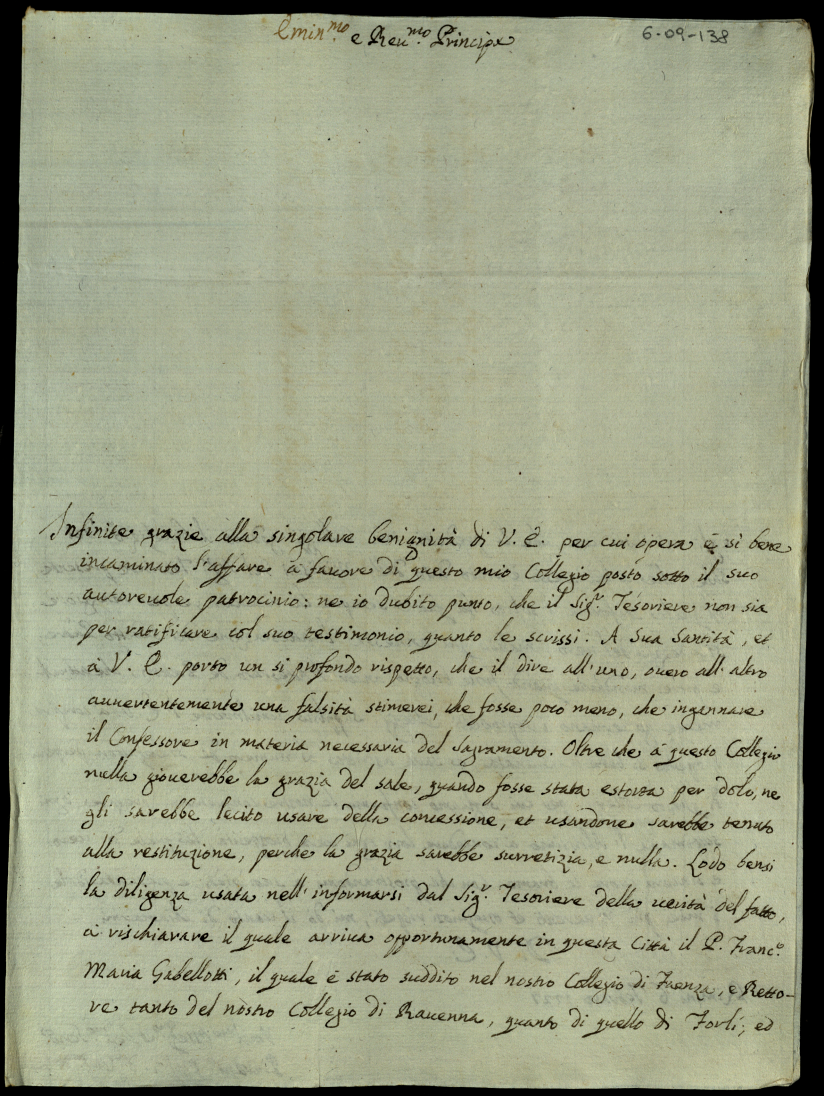 Emin.mo e Reu.mo Principe
6-09-138
Infinite grazie alla singolare benignità di V. E. per cui opera è si bene
incaminato l'affare a fauore di questo mio Collegio posto sotto il suo
autoreuole patrocinio: ne io dubito punto, che il Sig.r Tesoriere non sia
per ratificare col suo testimonio, quanto le scrissi. A Sua Santità, et
à V. E. porto un si profondo rispetto, che il dire all'uno, ouero all'altro
auuertentemente una falsità stimerei, che fosse poco meno, che ingannare
il Confessore in materia necessaria del Sagramento. Oltre che à questo Collegio
nulla giouerebbe la grazia del sale, quando fosse stata estorta per dolo, ne
gli sarebbe lecito usare della concessione, et usandone sarebbe tenuto
alla restituzione, perche la grazia sarebbe surretizia, e nulla. Lodo bensi
la diligenza usata nell'informarsi dal Sig.r Tesoriere della uerità del fatto,
à rischiarare il quale arriua opportunamente in questa Città il P. Franc.o
Maria Gabellotti, il quale è stato suddito nel nostro Collegio di Faenza, e Retto-
re tanto del nostro Collegio di Rauenna, quanto di quello di Forlì; ed